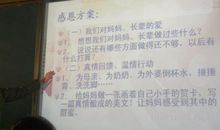 感恩方案：
（一）我们对妈妈、长辈的爱
1、想想我们对妈妈、长辈做过些什么？
2、说说还有哪些方面做得还不够，以后有什么打算？
（二）真情回馈、温情行动
1、为母亲、为奶奶、为外婆倒杯水、捶捶背、洗洗脚……
2、给妈妈做一张画着自己小手的贺卡，写一篇真情酿成的美文！让妈妈感受到其中的甜蜜。